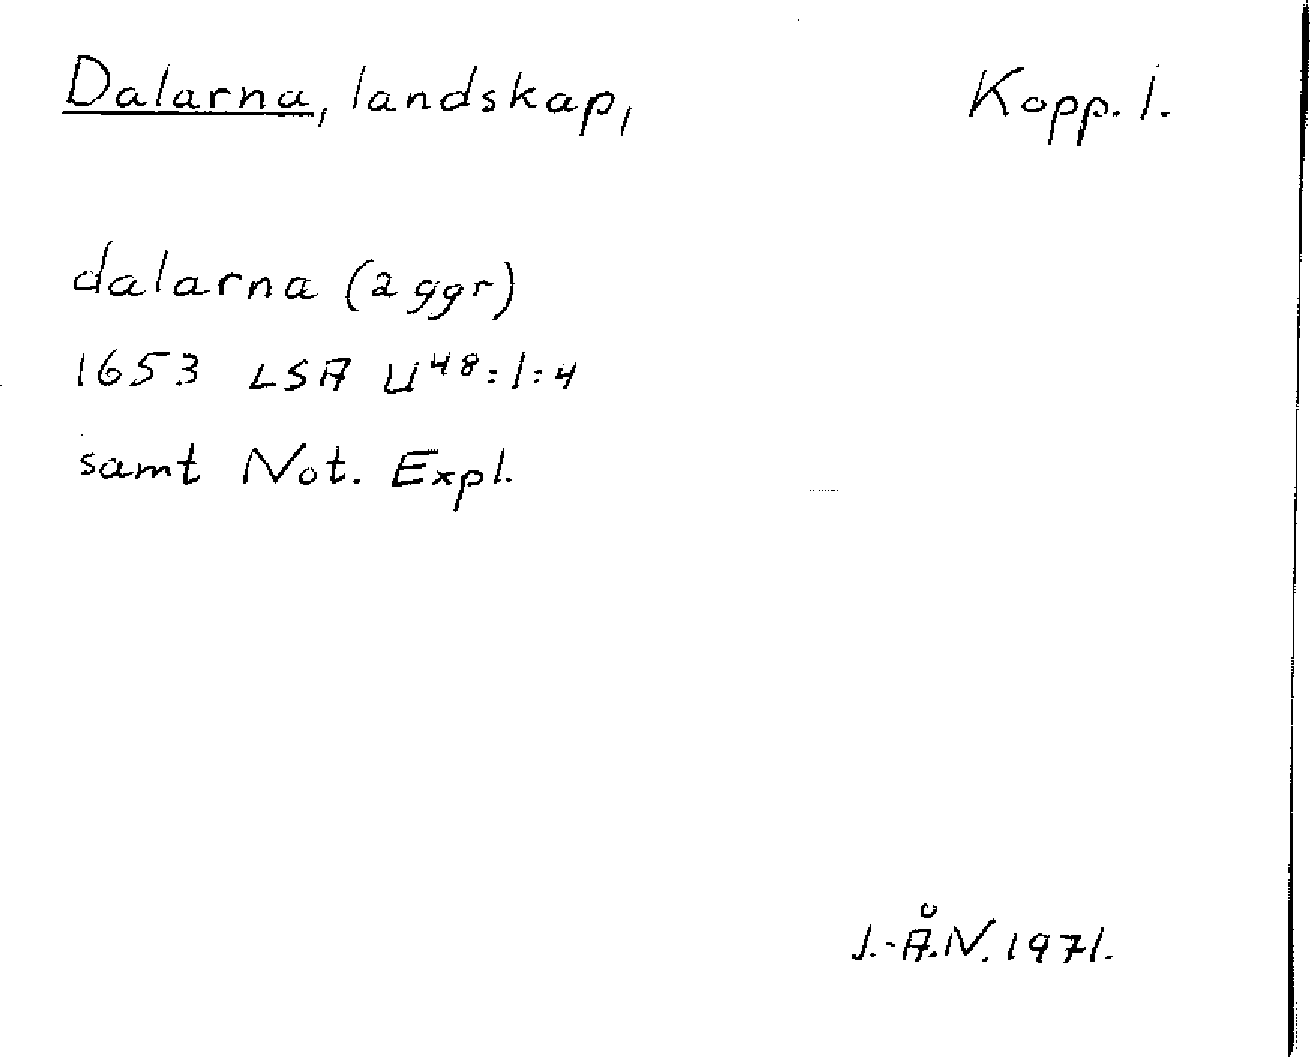 Dalarna, landskap, Kopp. l.
dalarna (2 ggr)
1653 LSA U⁴⁸:1:4
samt Not. Expl.
J.-Å.N. 1971.